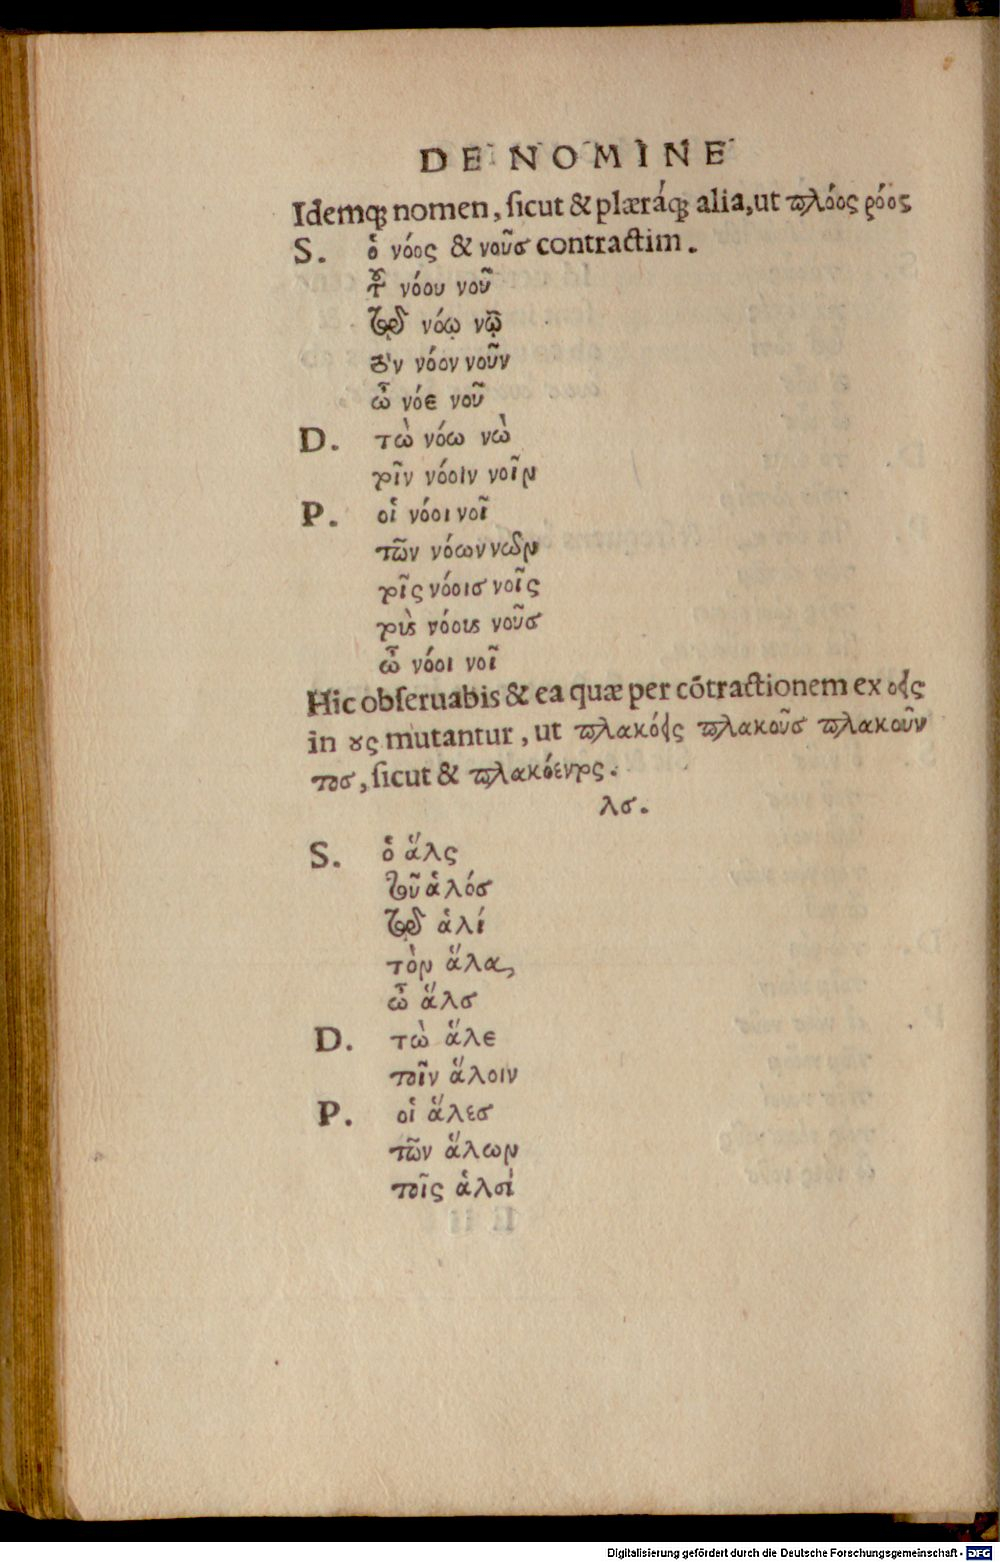 DE NOMINE
Idemq; nomen, ſicut & plæráq; alia, ut πλόος ρόος
S. ὁ νόος & νοῦσ contractim.
τȣ͂ νόου νοῦ
τῷ νόῳ νῷ
τὸν νόον νοῦν
ὦ νόε νοῦ
D. τὼ νόω νὼ
τοῖν νόοιν νοῖν
P. οἱ νόοι νοῖ
τῶν νόων νῶν
τοῖς νόοισ νοῖς
τοὺς νόους νοῦσ
ὦ νόοι νοῖ
Hic obſeruabis & ea quæ per cōtractionem ex οεις
in ȣς mutantur, ut πλακόεις πλακοῦσ πλακοῦν
τοσ, ſicut & πλακόεντος.
λσ.
S. ὁ ἅλς
τοῦ ἁλόσ
τῷ ἁλί
τὸν ἅλα,
ὦ ἅλσ
D. τὼ ἅλε
τοῖν ἅλοιν
P. οἱ ἅλεσ
τῶν ἅλων
τοῖς ἁλσί
Digitalisierung gefördert durch die Deutsche Forschungsgemeinschaft - DFG